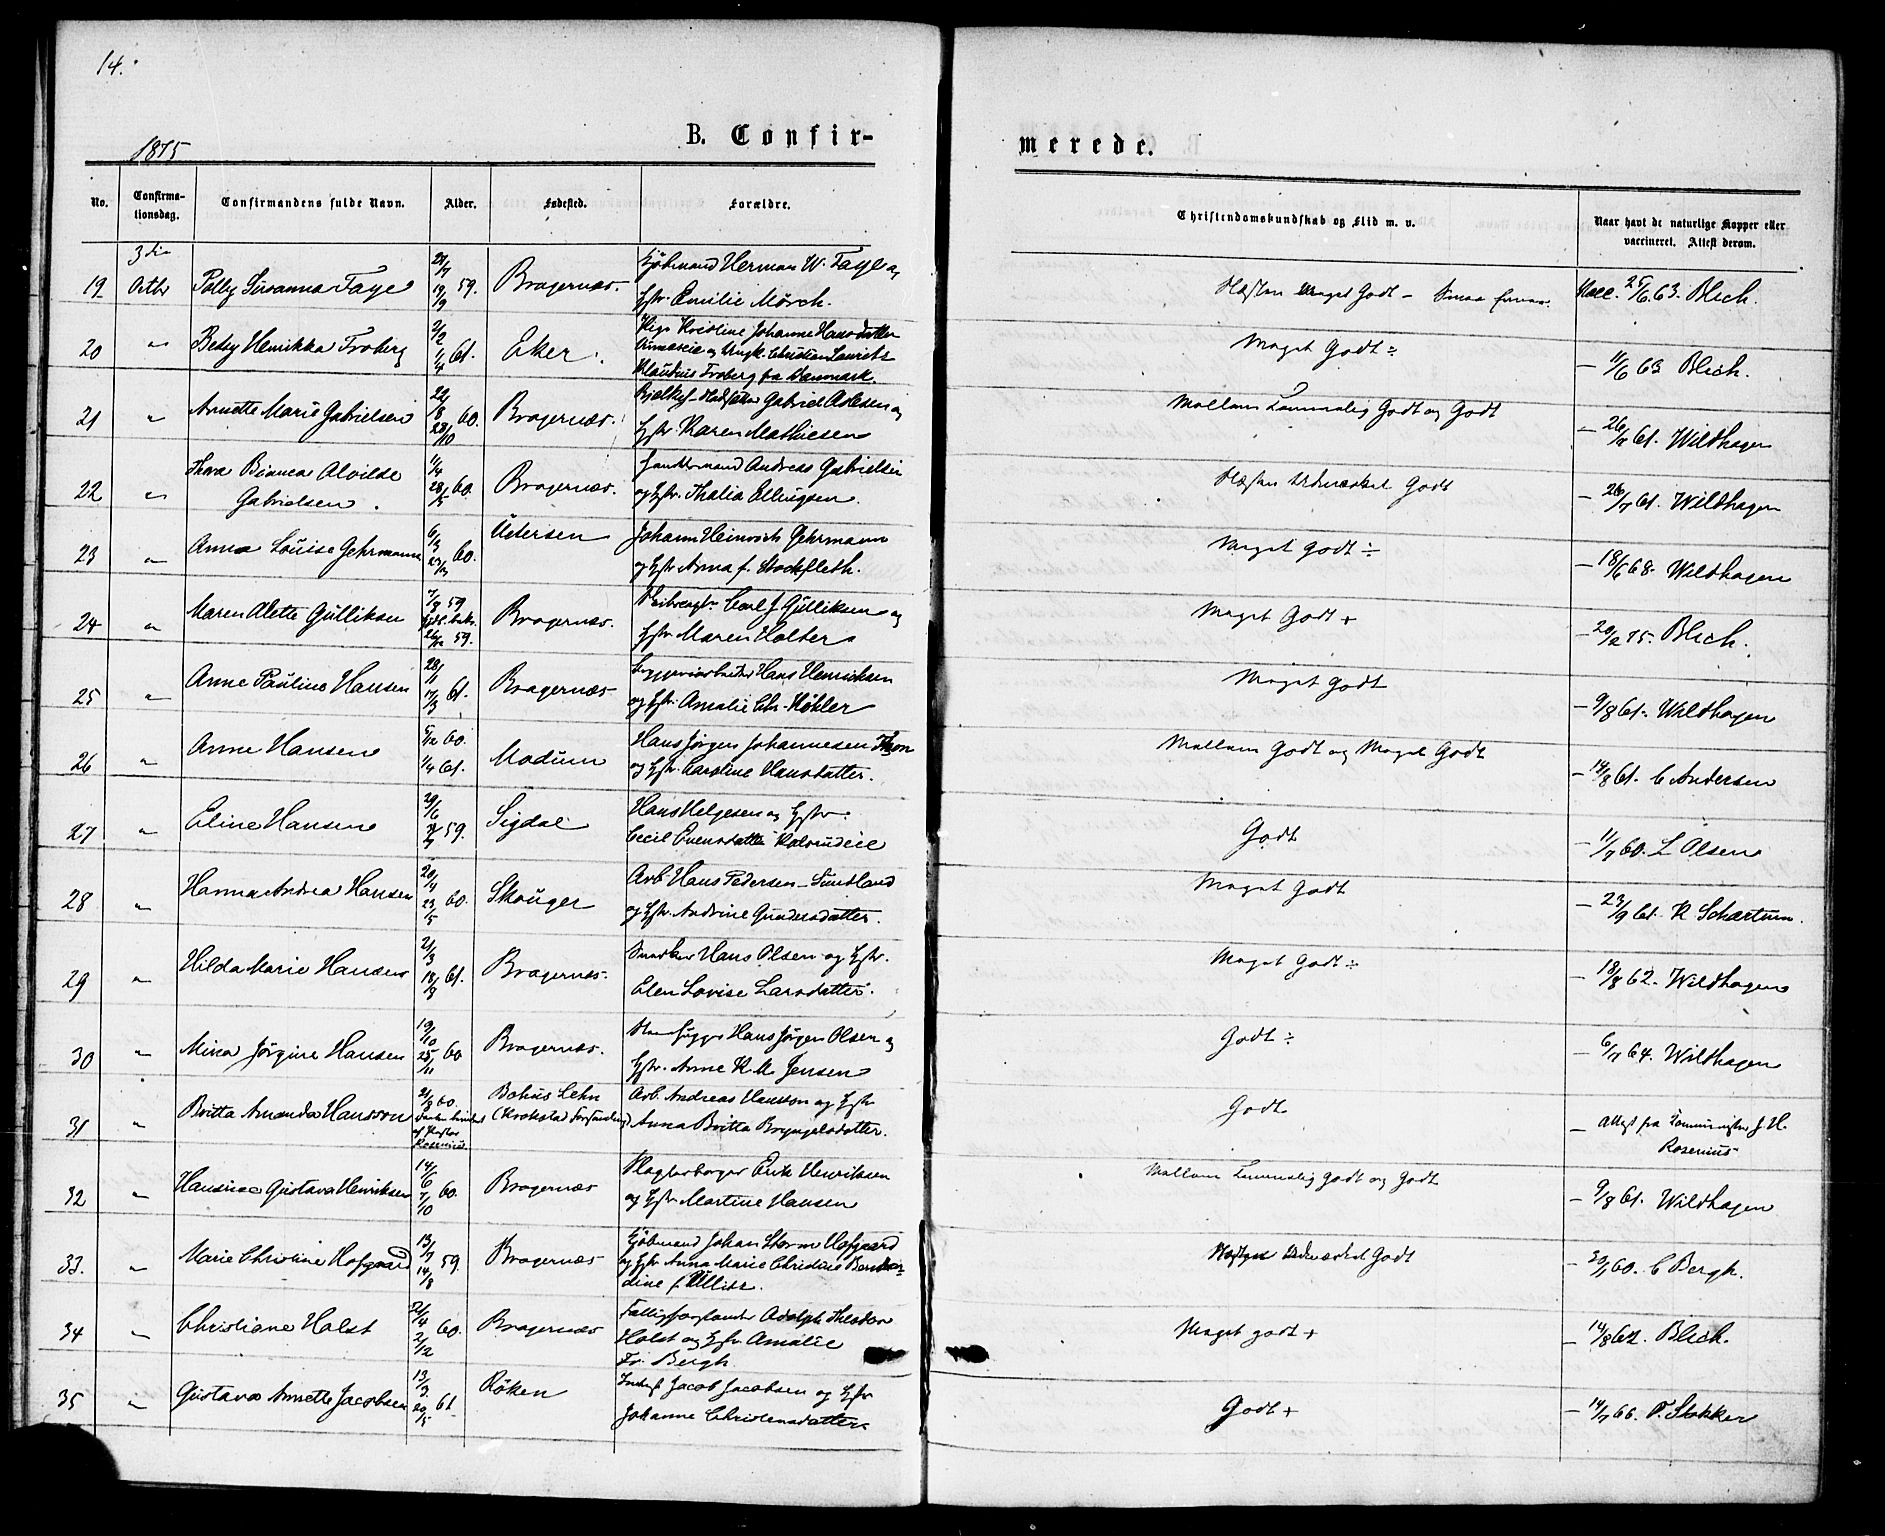 14.
1875
B. Confir-
merede.
No.
Confirma-
tionsdag.
Confirmandens fulde Navn.
Alder.
Fødested.
Forældre.
Christendomskundskab og Flid m. v.
Naar havt de naturlige Kopper eller
vaccineret. Attest derom.
19 3die Octbr Polly Susanna Faye 19/9 59. Bragernæs. Kjøbmand Herman W. Faye og
Hstr. Emilie Mørch. Næsten Meget Godt – Vacc. 25/6 63. Blich.
20 " Betsy Henrikka Froberg 2/2 1/4 61. Eker. Pige Kristine Johanne Hansdatter
og Ungk. Christian Laurits
Klaudius Froberg fra Danmark. Meget Godt ÷ – 11/6 63 Blich.
21 " Annette Marie Gabrielsen 22/8 28/10 60. Bragernæs. Gabriel Aslesen og
Hstr. Karen Mathiesen Mellem Temmelig Godt og Godt – 26/7 61. Wildhagen
22 " Thora Bianca Alvilde
Gabrielsen. 11/4 28/5 60. Bragernæs. Andreas Gabrielsen
og Hstr. Thalia Ellingsen. Næsten Udmærket Godt – 26/7 61. Wildhagen
23 " Anna Louise Gehrmann 60. Uetersen Johann Heinrich Gehrmann
og Hstr Anna f. Stockfleth. Meget Godt ÷ – 18/6 68. Wildhagen
24 " Maren Alette Gulliksen 59. Bragernæs. Carl J. Gulliksen og
Hstr Maren Holter Meget Godt + – 20/2 75. Blich.
25 " Anne Pauline Hansen 28/1 17/3 61. Bragernæs Bryggeriarbeider Hans Henriksen
og Hstr. Amalie Chr. Køhler Meget Godt – 9/8 61. Wildhagen
26 " Anne Hansen 5/12 60. 1/4 61. Modum Hans Jørgen Johannesen Thon
og Hstr. Caroline Hansdatter. Mellem Godt og Meget Godt – 14/8 61. C Andersen
27 " Eline Hansen 29/6 59. Sigdal Hans Helgesen og Hstr.
Cecil Evensdatter Kolsrudeie Godt – 11/7 60. L Olsen
28 " Hanna Andrea Hansen 20/4 23/5 60. Skouger Arb. Hans Pedersen – Sundland
og Hstr. Andrine Gundersdatter. Meget Godt – 23/9 61. K Schartum.
29 " Hilda Marie Hansen 21/3 18/8 61. Bragernæs. Snedker Hans Olsen og Hstr.
Elen Lovise Larsdatter. Meget Godt ÷ – 18/8 62. Wildhagen
30 " Mina Jørgine Hansen 19/10 25/11 60 Bragernæs. Hans Jørgen Olsen og
Hstr. Anne K. M. Jensen Godt ÷ – 6/7 64. Wildhagen
31 " Britta Amanda Hansson 60.
af Pastor
Rosenius. Bohus Lehn
(Krokstad Forsamling) Arb. Andreas Hansson og Hstr
Anna Britta Bryngelsdatter. Godt – Attest fra Komminister J. H.
Rosenius
32 " Hansine Gustava Henriksen 14/6 7/10 60. Bragernæs Slagterborger Erik Henriksen
og Hstr Martine Hansen Mellem Temmelig Godt og Godt – 9/8 61. Wildhagen
33. " Marie Christine Hofgaard 13/7 14/8 59. Bragernæs Kjøbmand Johan Storm Hofgaard
og Hstr Anna Marie Christine
dine f. Udmærket Godt – 60. C Bergh.
34 " Christiane Holst 21/4 2/12 60. Bragernæs Fattigforstander Adolph Theodor
Holst og Hstr Amalie
Fr. Bergh Meget godt + – 14/8 62. Blich.
35 " Gustava Annette Jacobsen 13/3 20/5 61 Røken Jacob Jacobsen og Hstr
Johanne Christensdatter Godt + – 14/7 66. P. Stokker